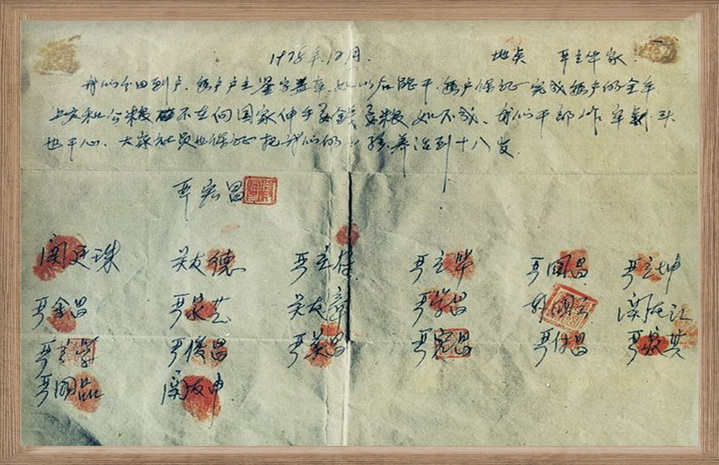 1978年12月. 地点 严立华家
我们分田到户.每户户主签字盖章.如以后能干.每户保证完成每户的全年
上交和公粮 不在向国家伸手要钱要粮 如不成、我们干部作牢刹头
也干心、大家社员也保证把我们的小孩养活到十八岁
严宏昌
关廷珠 关友德 严立符 严立华 严国昌 严立坤
严金昌 严家芝 关友章 严学昌 韩国云 关友江
严立学 严俊昌 严美昌 严宏昌 严付昌 严家其
严国品 关友申